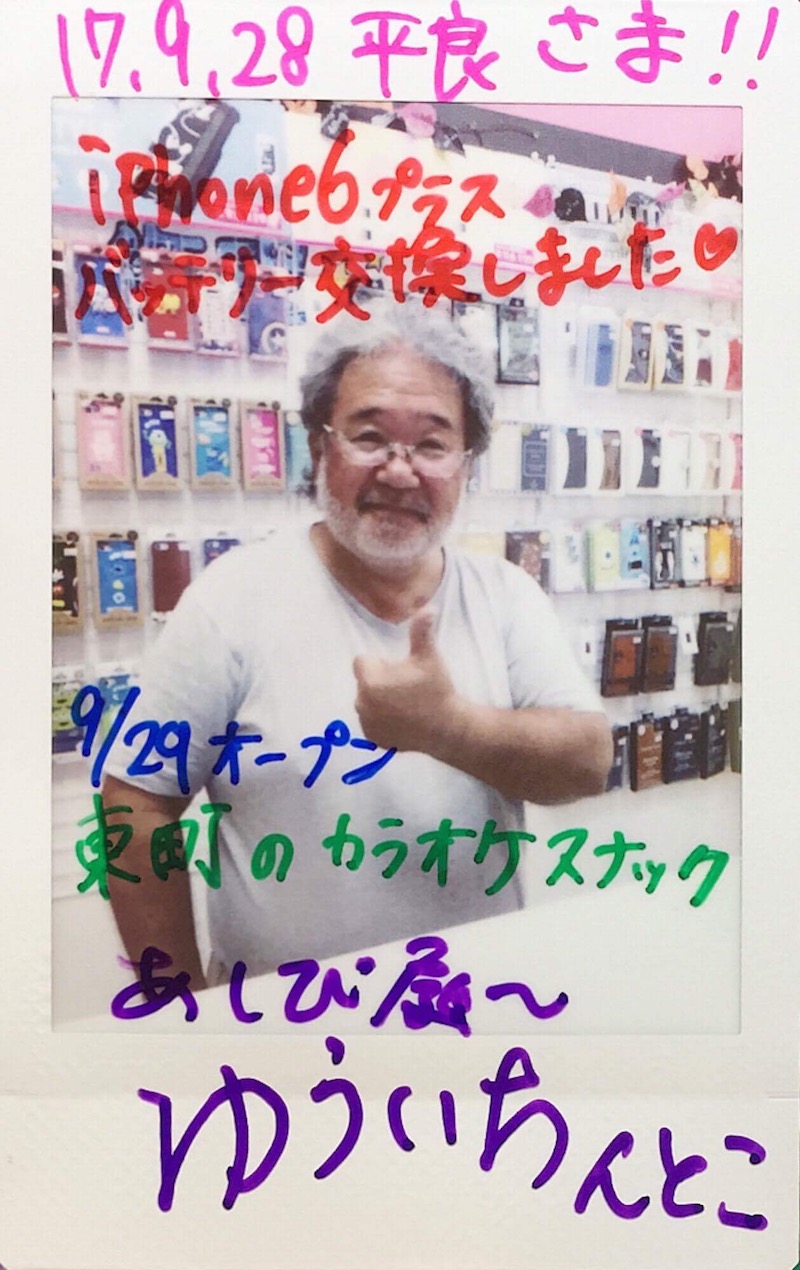 17.9.28 平良さま!!
iPhone6プラス
バッテリー交換しました♡
9/29オープン
東町のカラオケスナック
あしび庭〜
ゆういちんとこ